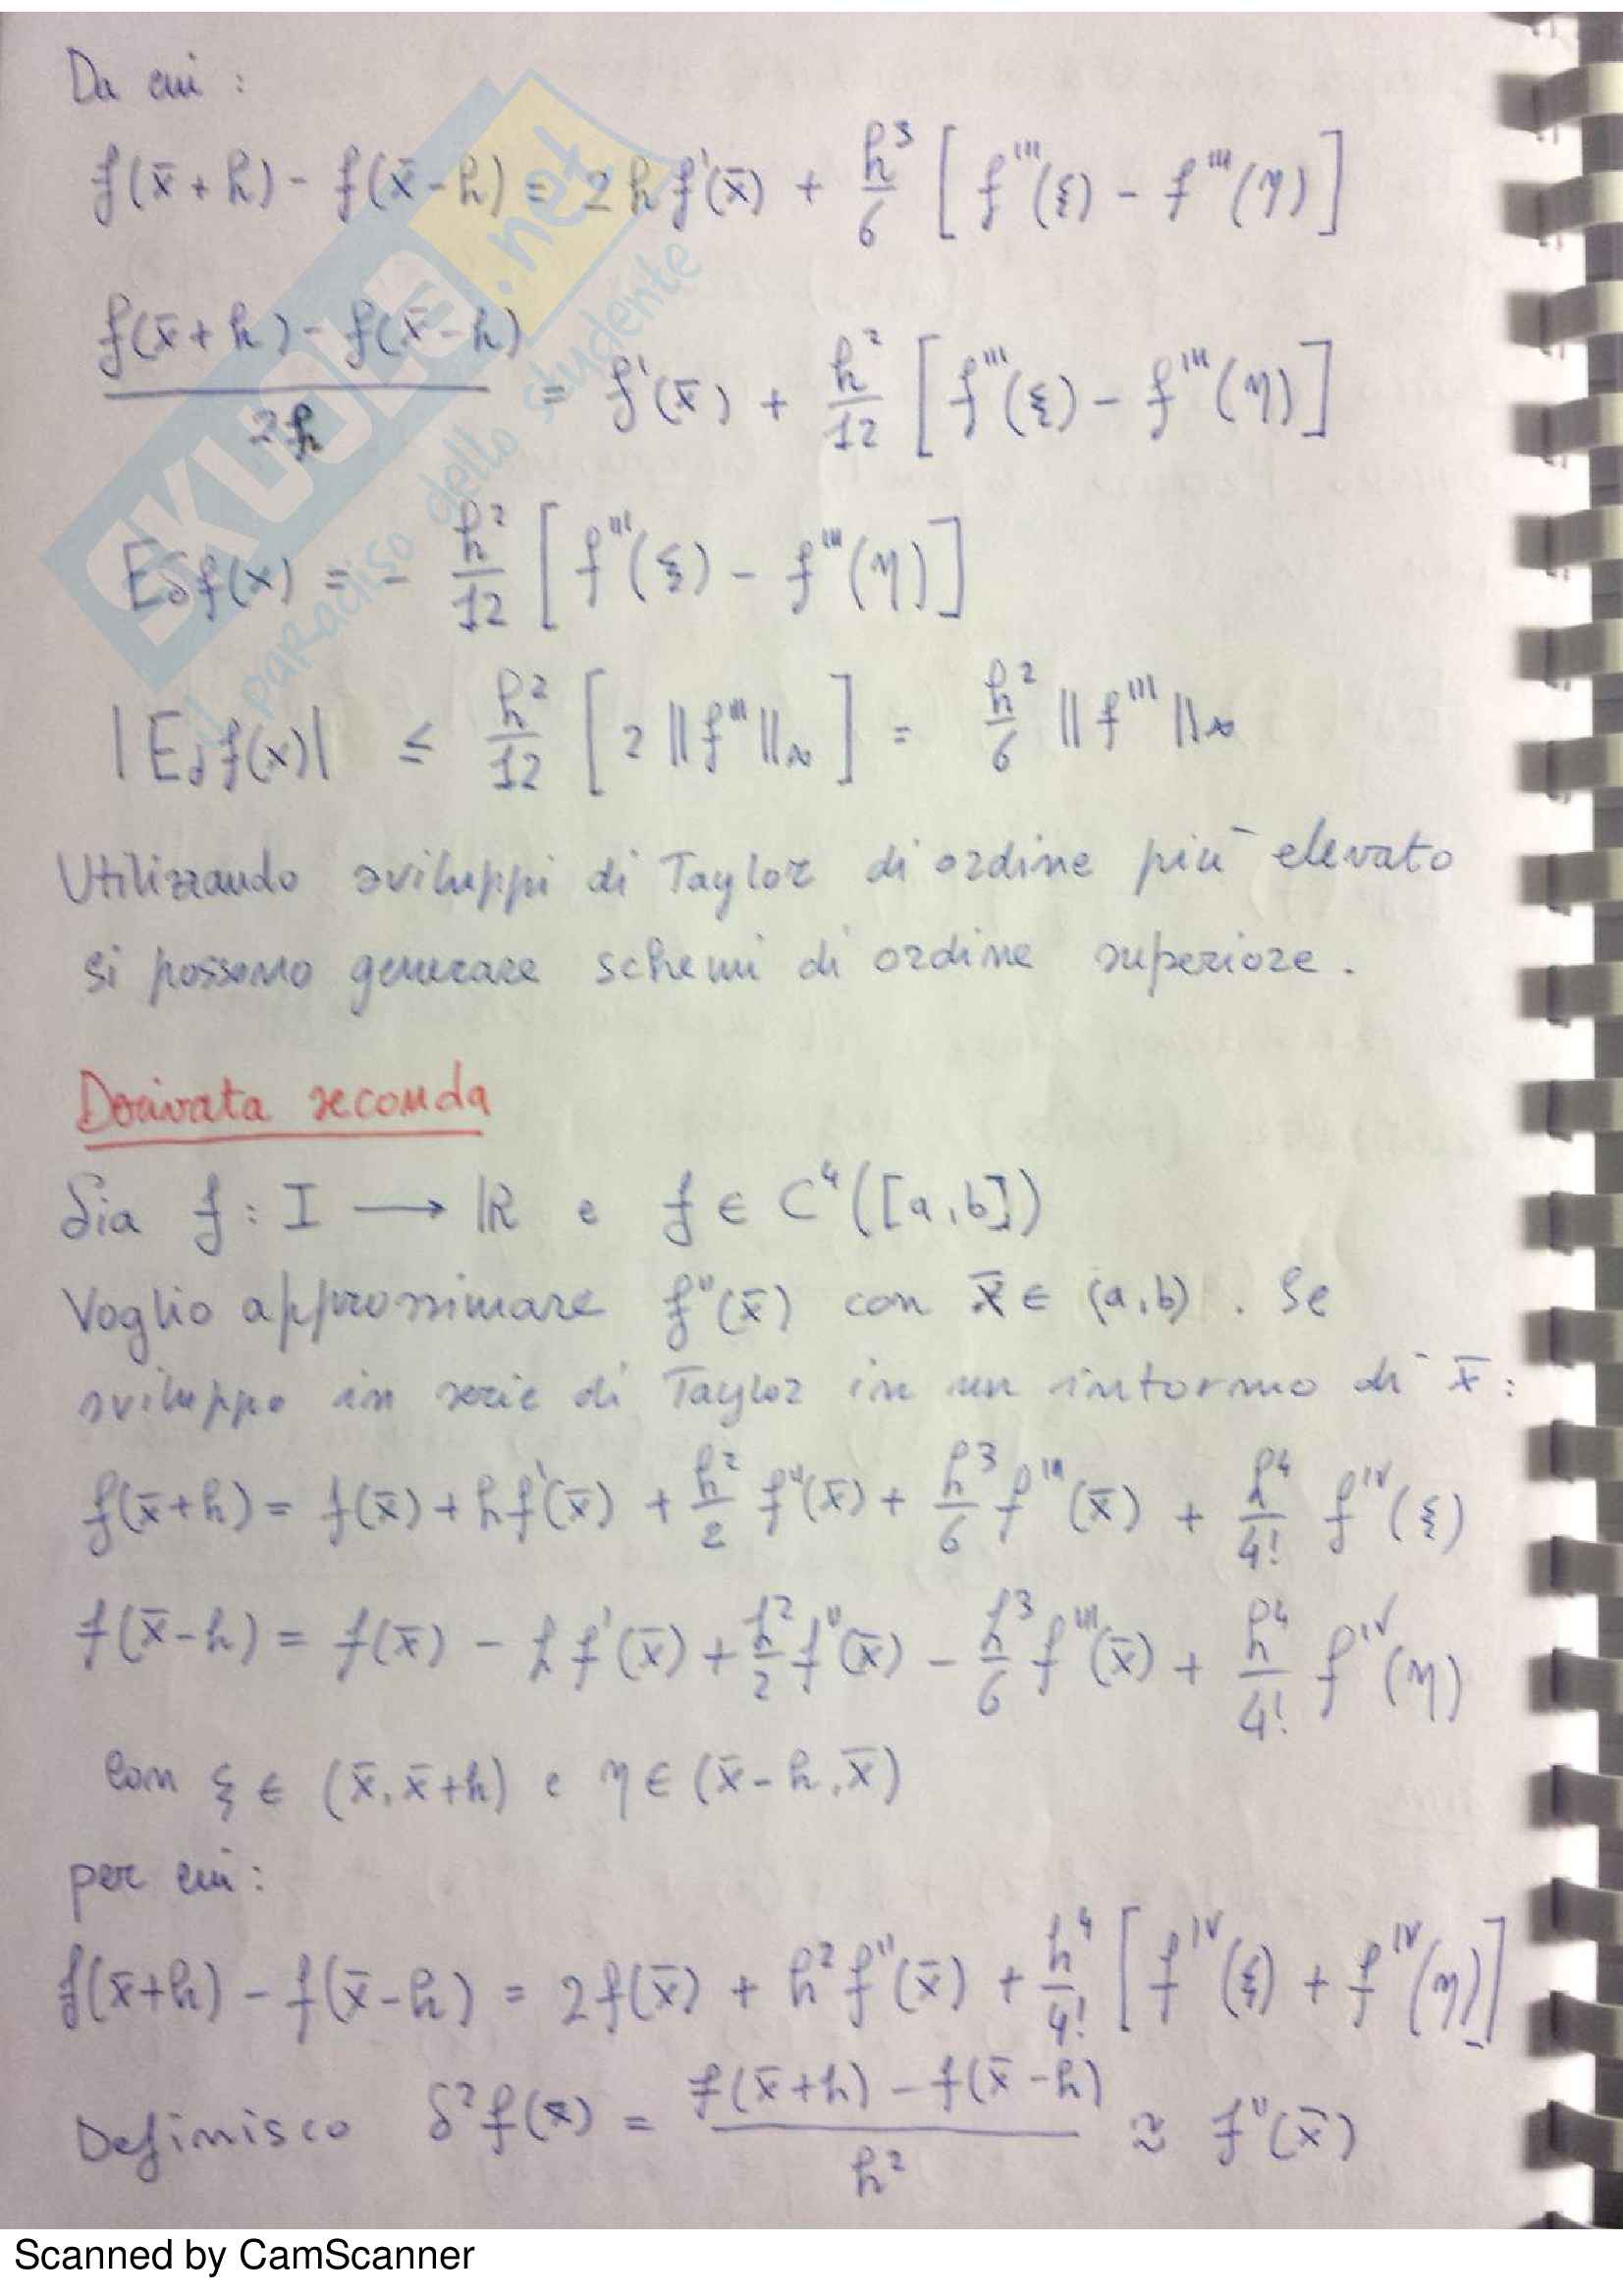 Da cui :
f(x̄ + h) - f(x̄ - h) = 2 h f'(x̄) + h³/6 [ f'''(ξ) - f'''(η) ]
f(x̄ + h) - f(x̄ - h) / 2h = f'(x̄) + h²/12 [ f'''(ξ) - f'''(η) ]
Eδf(x) = - h²/12 [ f'''(ξ) - f'''(η) ]
|Eδf(x)| ≤ h²/12 [ 2 ||f'''||∞ ] = h²/6 ||f'''||∞
Utilizzando sviluppi di Taylor di ordine più elevato
si possono generare schemi di ordine superiore.
Derivata seconda
Sia f : I ⟶ ℝ e f ∈ C⁴([a,b])
Voglio approssimare f''(x̄) con x̄ ∈ (a,b) . Se
sviluppo in serie di Taylor in un intorno di x̄ :
f(x̄+h) = f(x̄) + hf'(x̄) + h²/2 f''(x̄) + h³/6 f'''(x̄) + h⁴/4! f^IV(ξ)
f(x̄-h) = f(x̄) - hf'(x̄) + h²/2 f''(x̄) - h³/6 f'''(x̄) + h⁴/4! f^IV(η)
con ξ ∈ (x̄, x̄+h) e η ∈ (x̄-h, x̄)
per cui :
f(x̄+h) - f(x̄-h) = 2f(x̄) + h² f''(x̄) + h⁴/4! [ f^IV(ξ) + f^IV(η) ]
Definisco δ²f(x) = f(x̄+h) - f(x̄-h) / h² ≈ f''(x̄)
SKUOLA.net
il paradiso dello studente
Scanned by CamScanner